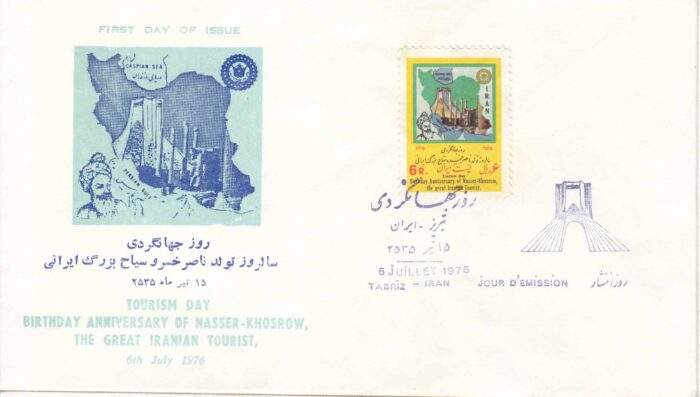 FIRST DAY OF ISSUE
CASPIAN SEA
دریای مازندران
روز جهانگردی
سالروز تولد ناصر خسرو سیاح بزرگ ایرانی
۱۵ تیر ماه ۲۵۳۵
TOURISM DAY
BIRTHDAY ANNIVERSARY OF NASSER-KHOSROW,
THE GREAT IRANIAN TOURIST,
6th July 1976
IRAN
روز جهانگردی
سالروز تولد ناصر خسرو سیاح بزرگ ایرانی
6R. پست ایران ۶ ریال
Tourism Day
Birthday Anniversary of Nasser-Khosrow,
the great Iranian Tourist.
روز جهانگردی
تبریز - ایران
۱۵ تیر ۲۵۳۵
6 JUILLET 1976
TABRIZ - IRAN
JOUR D'EMISSION روز انتشار